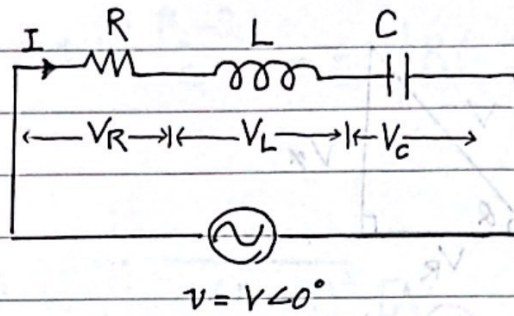 I R L C
V_R V_L V_c
v = V∠0°